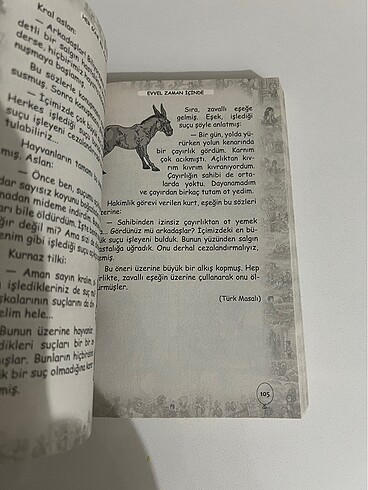 Kral aslan:
— Arkadaşlar! Bil
detli bir salgın hasta
derse, hiçbirimiz k
nuşmaya başlamış
Bu sözlerle konuşma
susmuş. Sonra konuşma
— İçimizde çok büyük
Herkes işlediği suçu
suçu işleyeni cezalandı
tulabiliriz.
Hayvanların tamamı
mış. Aslan:
— Önce ben, suçumu
dar sayısız koyunu boğa
madan mideme indirdi
arı bile öldürdüm. İşte ben
ğır değil mi? Ama siz de
enim gibi işlediği suçu
Kurnaz tilki:
— Aman sayın kralım,
işledikleriniz de suç mu
şkalarının suçlarını da
elim hele...
Bunun üzerine hayvan
dikleri suçları bir bir
ışlar. Bunların hiçbirisin
k bir suç olmadığına kar
miş.
EVVEL ZAMAN İÇİNDE
Sıra, zavallı eşeğe
gelmiş. Eşek, işlediği
suçu şöyle anlatmış:
— Bir gün, yolda yü-
rürken yolun kenarında
bir çayırlık gördüm. Karnım
çok acıkmıştı. Açlıktan kıv-
rım kıvrım kıvranıyordum.
Çayırlığın sahibi de orta-
larda yoktu. Dayanamadım
ve çayırdan birkaç tutam ot yedim.
Hakimlik görevi verilen kurt, eşeğin bu sözleri
üzerine:
— Sahibinden izinsiz çayırlıktan ot yemek
... Gördünüz mü arkadaşlar? İçimizdeki en bü-
ük suçu işleyeni bulduk. Bunun yüzünden salgın
hastalığa uğradık. Onu derhal cezalandırmalıyız,
emiş.
Bu öneri üzerine büyük bir alkış kopmuş. Hep
birlikte, zavallı eşeğin üzerine çullanarak onu öl-
ürmüşler.
(Türk Masalı)
105